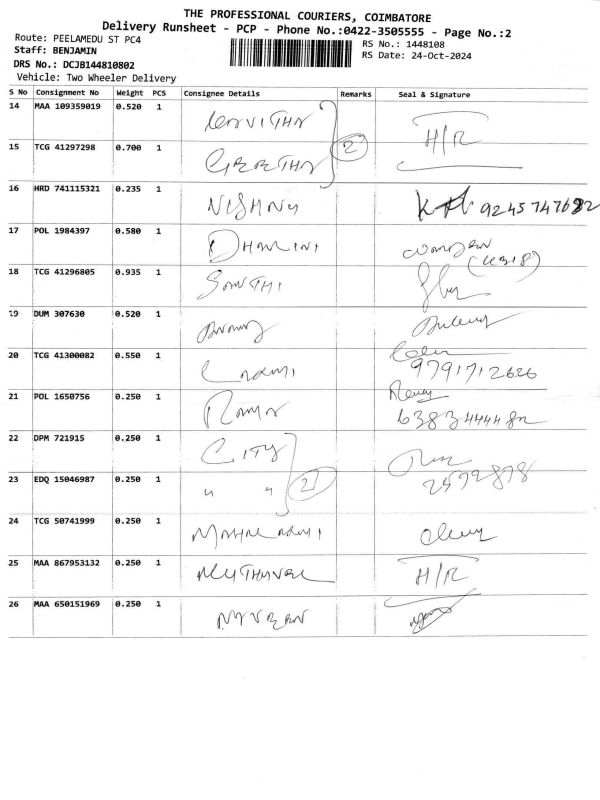 THE PROFESSIONAL COURIERS, COIMBATORE
Delivery Runsheet - PCP - Phone No.:0422-3505555 - Page No.:2
Route: PEELAMEDU ST PC4
RS No.: 1448108
Staff: BENJAMIN
RS Date: 24-Oct-2024
DRS No.: DCJB144810802
Vehicle: Two Wheeler Delivery
S No Consignment No Weight PCS Consignee Details Remarks Seal & Signature
14 MAA 109359019 0.520 1
15 TCG 41297298 0.700 1 GEETHA 2 H/R
16 HRD 741115321 0.235 1 9245747682
17 POL 1984397 0.580 1 DHARINI
18 TCG 41296805 0.935 1
19 DUM 307630 0.520 1
20 TCG 41300082 0.550 1 9791712626
21 POL 1650756 0.250 1 RAMYA
22 DPM 721915 0.250 1 CITY
23 EDQ 15046987 0.250 1 " " 2
24 TCG 50741999 0.250 1
25 MAA 867953132 0.250 1 MUTHUVEL H/R
26 MAA 650151969 0.250 1